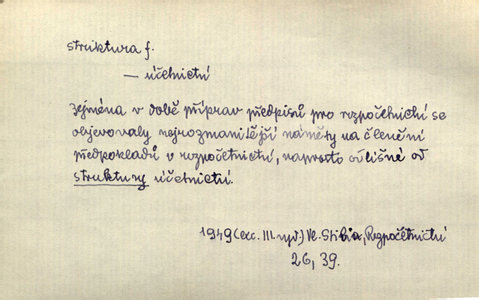 struktura f.
— účetnictví
zejména v době příprav předpisů pro rozpočetnictví se
objevovaly nejrozmanitější náměty na členění
předpokladů v rozpočetnictví, naprosto odlišné od
struktury účetnictví.
1949 (exc. III. vyd.) Vl. Stibic, Rozpočetnictví
26, 39.